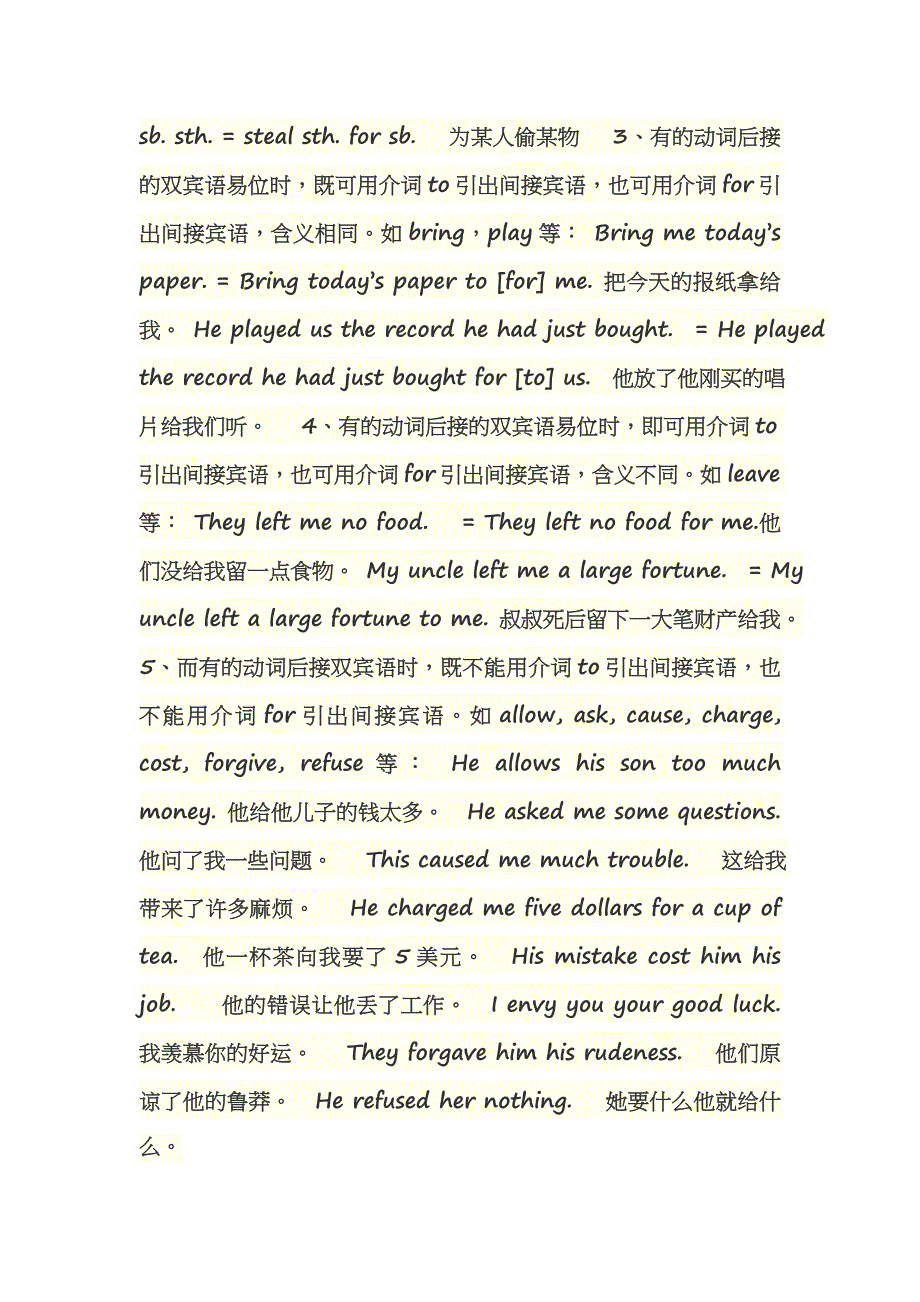 sb. sth. = steal sth. for sb. 为某人偷某物 3、有的动词后接
的双宾语易位时，既可用介词to引出间接宾语，也可用介词for引
出间接宾语，含义相同。如bring，play等： Bring me today's
paper. = Bring today's paper to [for] me. 把今天的报纸拿给
我。 He played us the record he had just bought. = He played
the record he had just bought for [to] us. 他放了他刚买的唱
片给我们听。 4、有的动词后接的双宾语易位时，即可用介词to
引出间接宾语，也可用介词for引出间接宾语，含义不同。如leave
等： They left me no food. = They left no food for me.他
们没给我留一点食物。 My uncle left me a large fortune. = My
uncle left a large fortune to me. 叔叔死后留下一大笔财产给我。
5、而有的动词后接双宾语时，既不能用介词to引出间接宾语，也
不能用介词for引出间接宾语。如allow, ask, cause, charge,
cost, forgive, refuse等： He allows his son too much
money. 他给他儿子的钱太多。 He asked me some questions.
他问了我一些问题。 This caused me much trouble. 这给我
带来了许多麻烦。 He charged me five dollars for a cup of
tea. 他一杯茶向我要了5美元。 His mistake cost him his
job. 他的错误让他丢了工作。 I envy you your good luck.
我羡慕你的好运。 They forgave him his rudeness. 他们原
谅了他的鲁莽。 He refused her nothing. 她要什么他就给什
么。